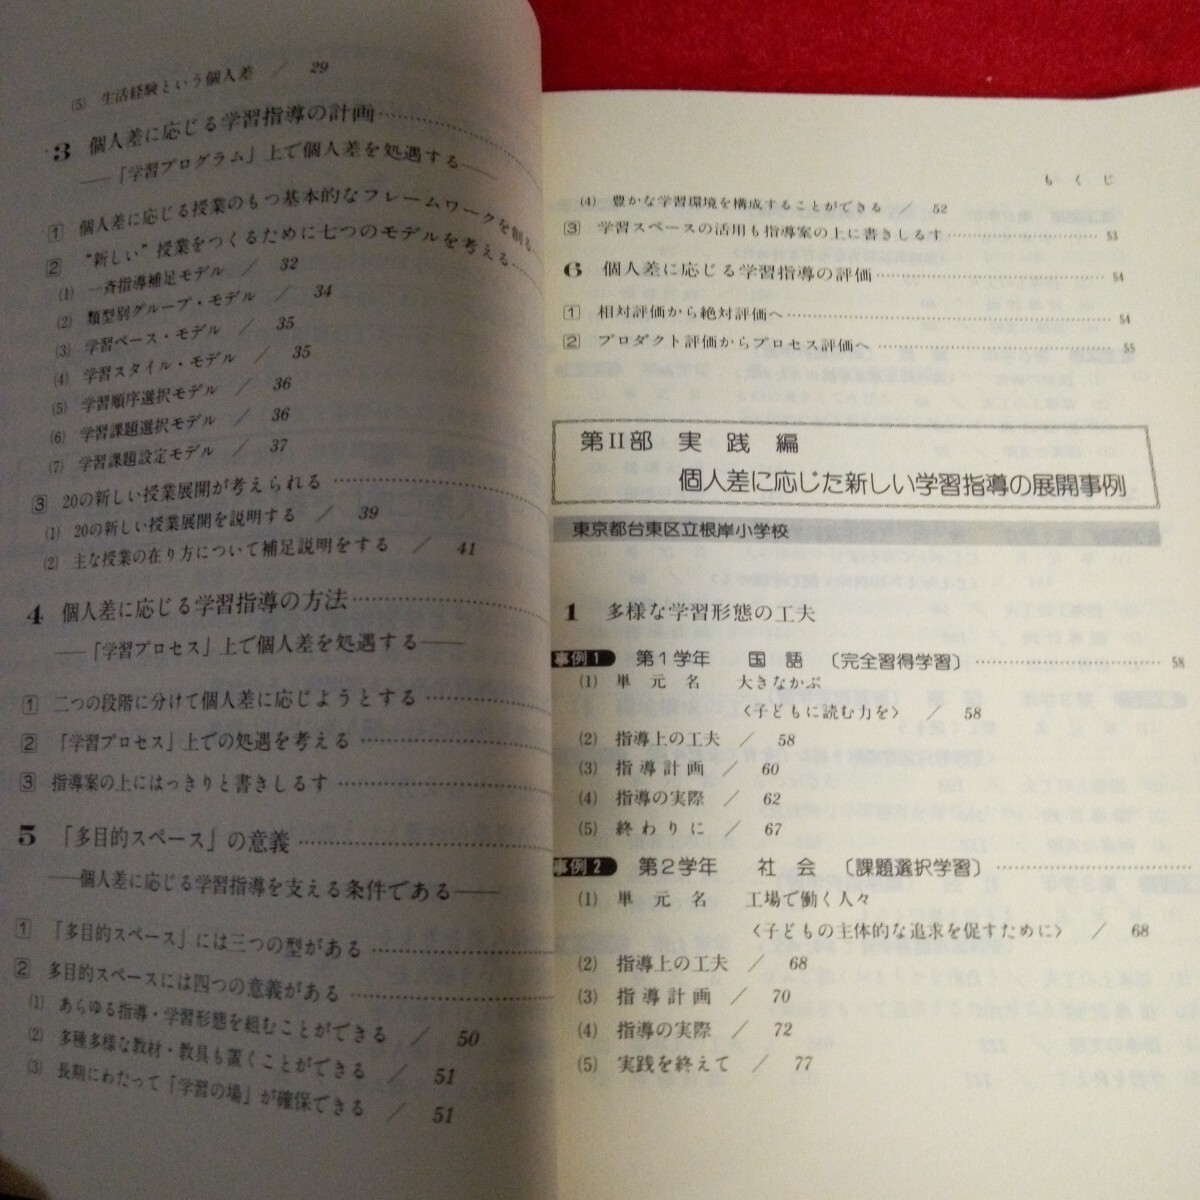 (5) 生活経験という個人差 ／ 29
3 個人差に応じる学習指導の計画
――「学習プログラム」上で個人差を処遇する――
1 個人差に応じる授業のもつ基本的なフレームワークを創る
2 “新しい”授業をつくるために七つのモデルを考える
(1) 一斉指導補足モデル ／ 32
(2) 類型別グループ・モデル ／ 34
(3) 学習ペース・モデル ／ 35
(4) 学習スタイル・モデル ／ 35
(5) 学習順序選択モデル ／ 36
(6) 学習課題選択モデル ／ 36
(7) 学習課題設定モデル ／ 37
3 20の新しい授業展開が考えられる
(1) 20の新しい授業展開を説明する ／ 39
(2) 主な授業の在り方について補足説明をする ／ 41
4 個人差に応じる学習指導の方法
――「学習プロセス」上で個人差を処遇する――
1 二つの段階に分けて個人差に応じようとする
2 「学習プロセス」上での処遇を考える
3 指導案の上にはっきりと書きしるす
5 「多目的スペース」の意義
――個人差に応じる学習指導を支える条件である――
1 「多目的スペース」には三つの型がある
2 多目的スペースには四つの意義がある
(1) あらゆる指導・学習形態を組むことができる ／ 50
(2) 多種多様な教材・教具も置くことができる ／ 51
(3) 長期にわたって「学習の場」が確保できる ／ 51
もくじ
(4) 豊かな学習環境を構成することができる ／ 52
3 学習スペースの活用も指導案の上に書きしるす 53
6 個人差に応じる学習指導の評価 54
1 相対評価から絶対評価へ 54
2 プロダクト評価からプロセス評価へ 55
第II部 実践編
個人差に応じた新しい学習指導の展開事例
東京都台東区立根岸小学校
1 多様な学習形態の工夫
事例1 第1学年 国語 〔完全習得学習〕 58
(1) 単元名 大きなかぶ
〈子どもに読む力を〉 ／ 58
(2) 指導上の工夫 ／ 58
(3) 指導計画 ／ 60
(4) 指導の実際 ／ 62
(5) 終わりに ／ 67
事例2 第2学年 社会 〔課題選択学習〕
(1) 単元名 工場で働く人々
〈子どもの主体的な追求を促すために〉 ／ 68
(2) 指導上の工夫 ／ 68
(3) 指導計画 ／ 70
(4) 指導の実際 ／ 72
(5) 実践を終えて ／ 77